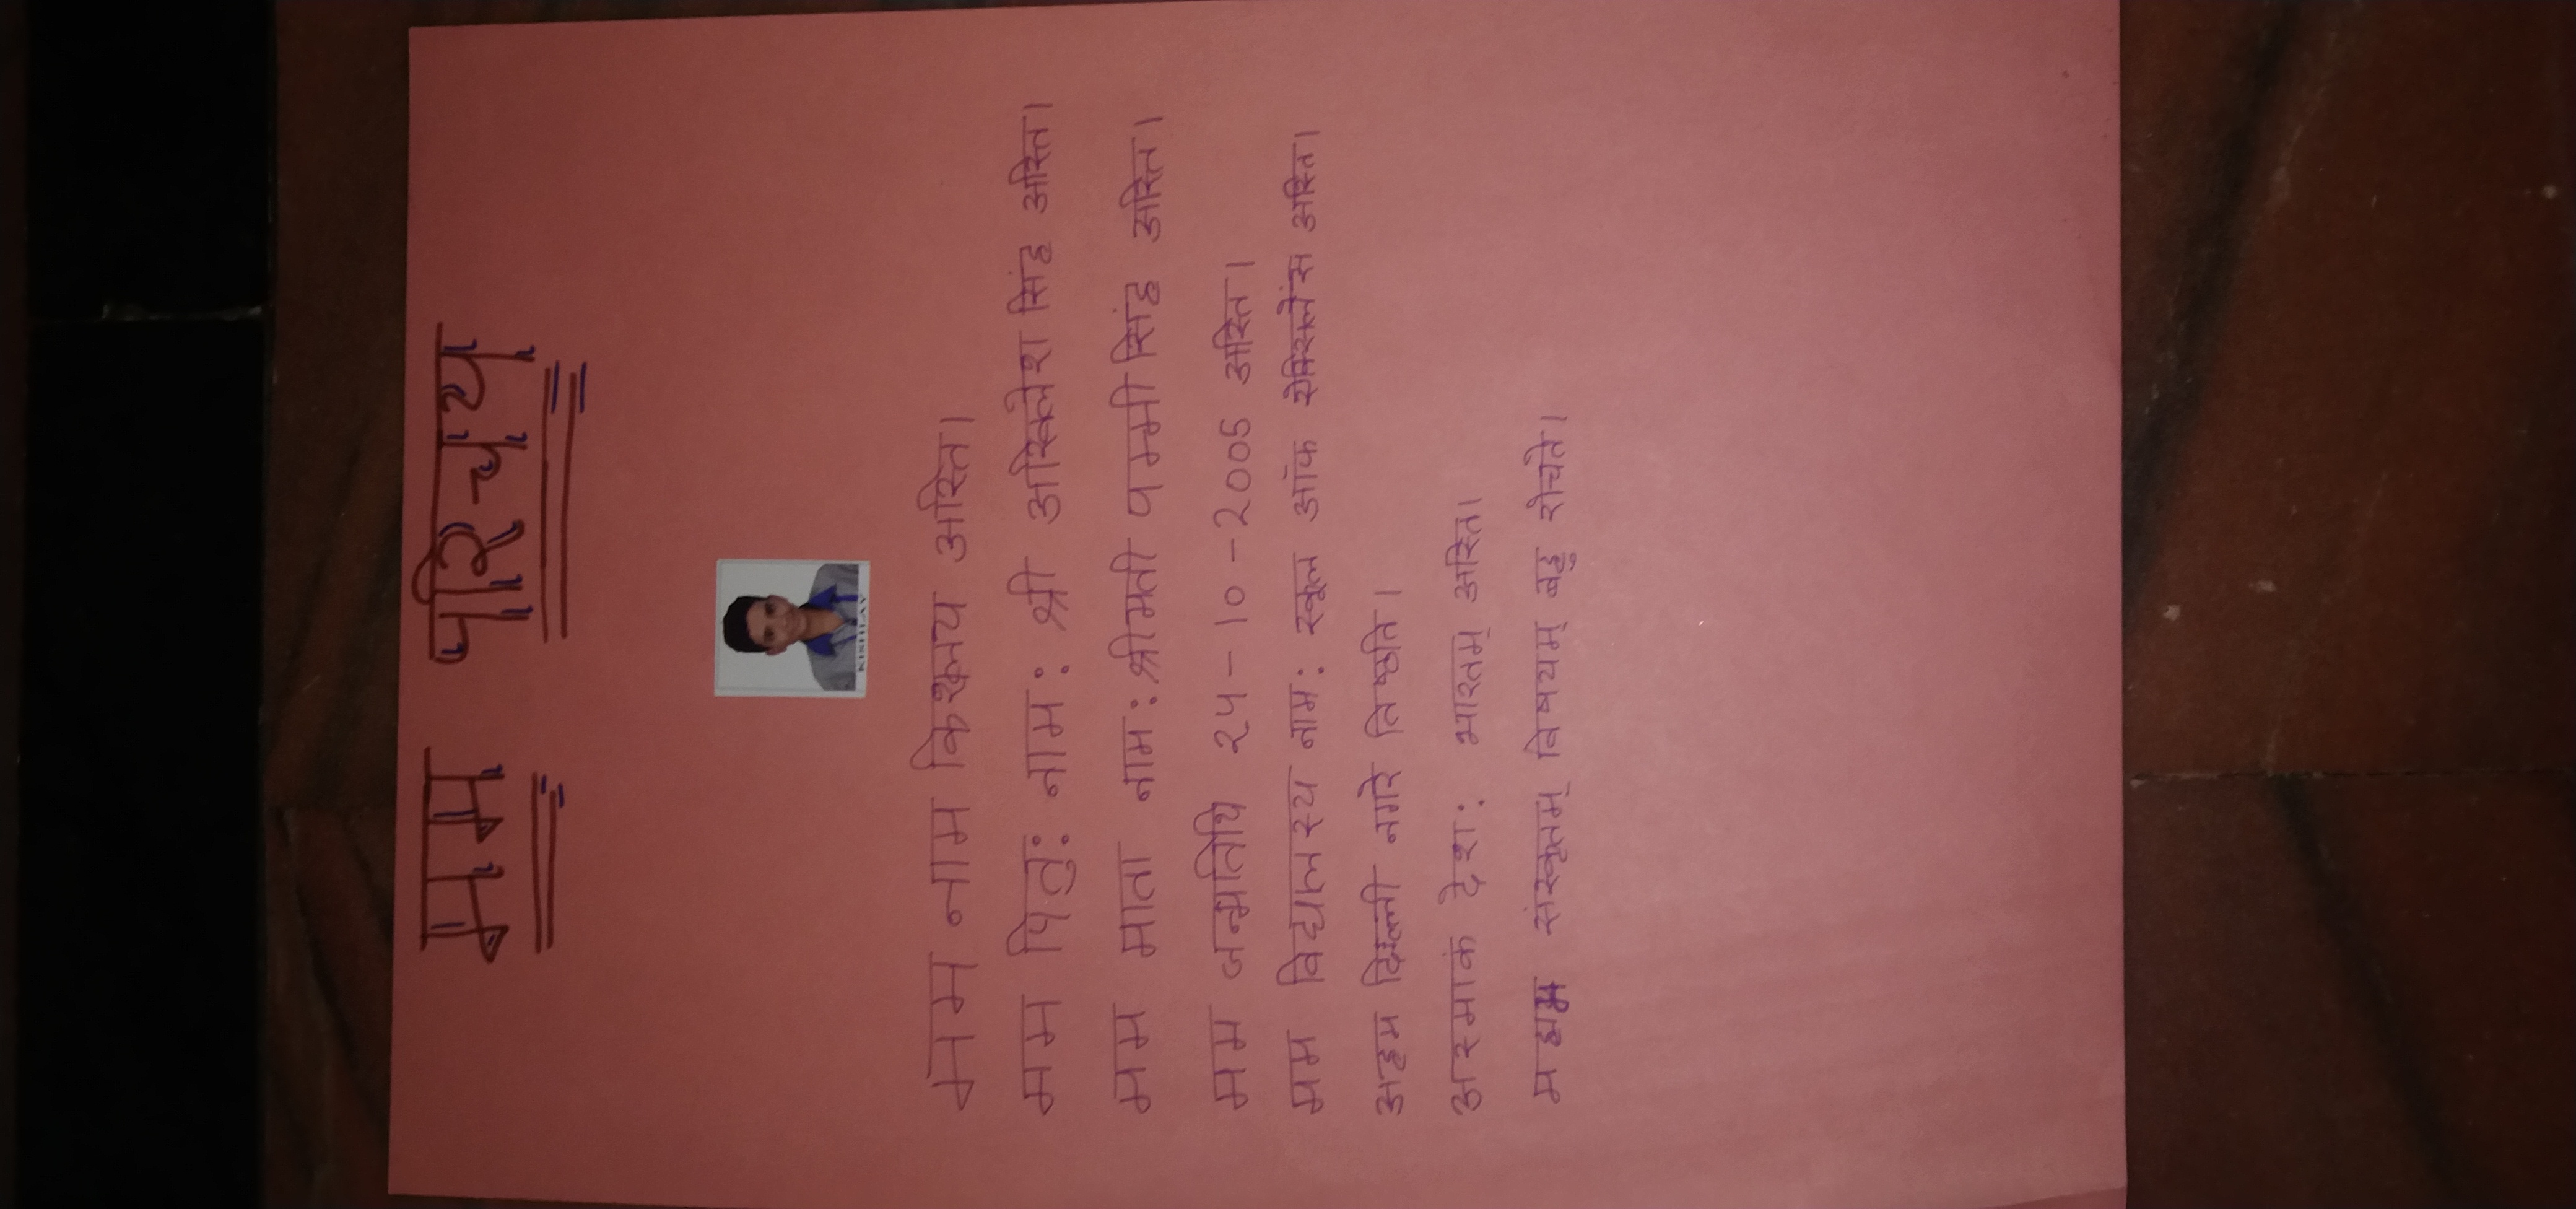 मम परिचय
KISHLAY
मम नाम किश्लय अस्ति।
मम पितुः नामः श्री अखिलेश सिंह अस्ति।
मम माता नामः श्रीमती पम्मी सिंह अस्ति।
मम जन्मतिथि 24-10-2005 अस्ति।
मम विद्यालस्य नामः स्कूल ऑफ ऐक्सिलेंस अस्ति।
अहम दिल्ली नगरे तिष्ठति।
अस्माकं देशः भारतम् अस्ति।
संस्कृतम् विषयम् बहु रोचते।